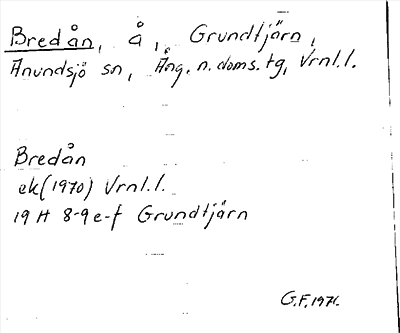 Bredån, å, Grundtjärn,
Anundsjö sn, Ång. n. doms. tg, Vrnl.l.
Bredån
ek (1970) Vrnl.l.
19 H 8-9 e-f Grundtjärn
G.F. 1971.